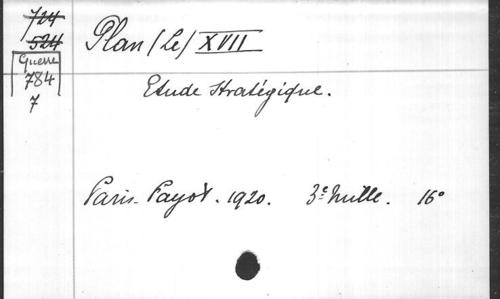 724
524
Guerre
784
7
Plan (Le) XVII
Etude stratégique.
Paris - Payot. 1920. 3e mille. 16°